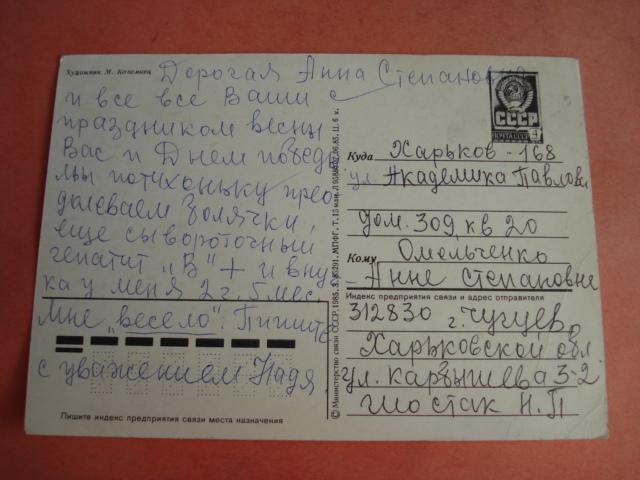 Художник М. Коломиец
Дорогая Анна Степановна
и все все Ваши с
праздником весны
Вас и Днем победы
мы потихоньку прео
долеваем болячки,
еще сывороточный
гепатит „В" + и вну
ка у меня 2 г. 5 мес.
Мне „весело". Пишите
с уважением Надя
Пишите индекс предприятия связи места назначения
© Министерство связи СССР, 1985.
СССР
ПОЧТА СССР
4
Куда Харьков - 168
ул. Академика Павлова
дом. 309 кв 20
Кому Омельченко
Анне Степановне
Индекс предприятия связи и адрес отправителя
312830 г. Чугуев
Харьковской обл
ул. Карбышева 3-2
Шостак Н.П